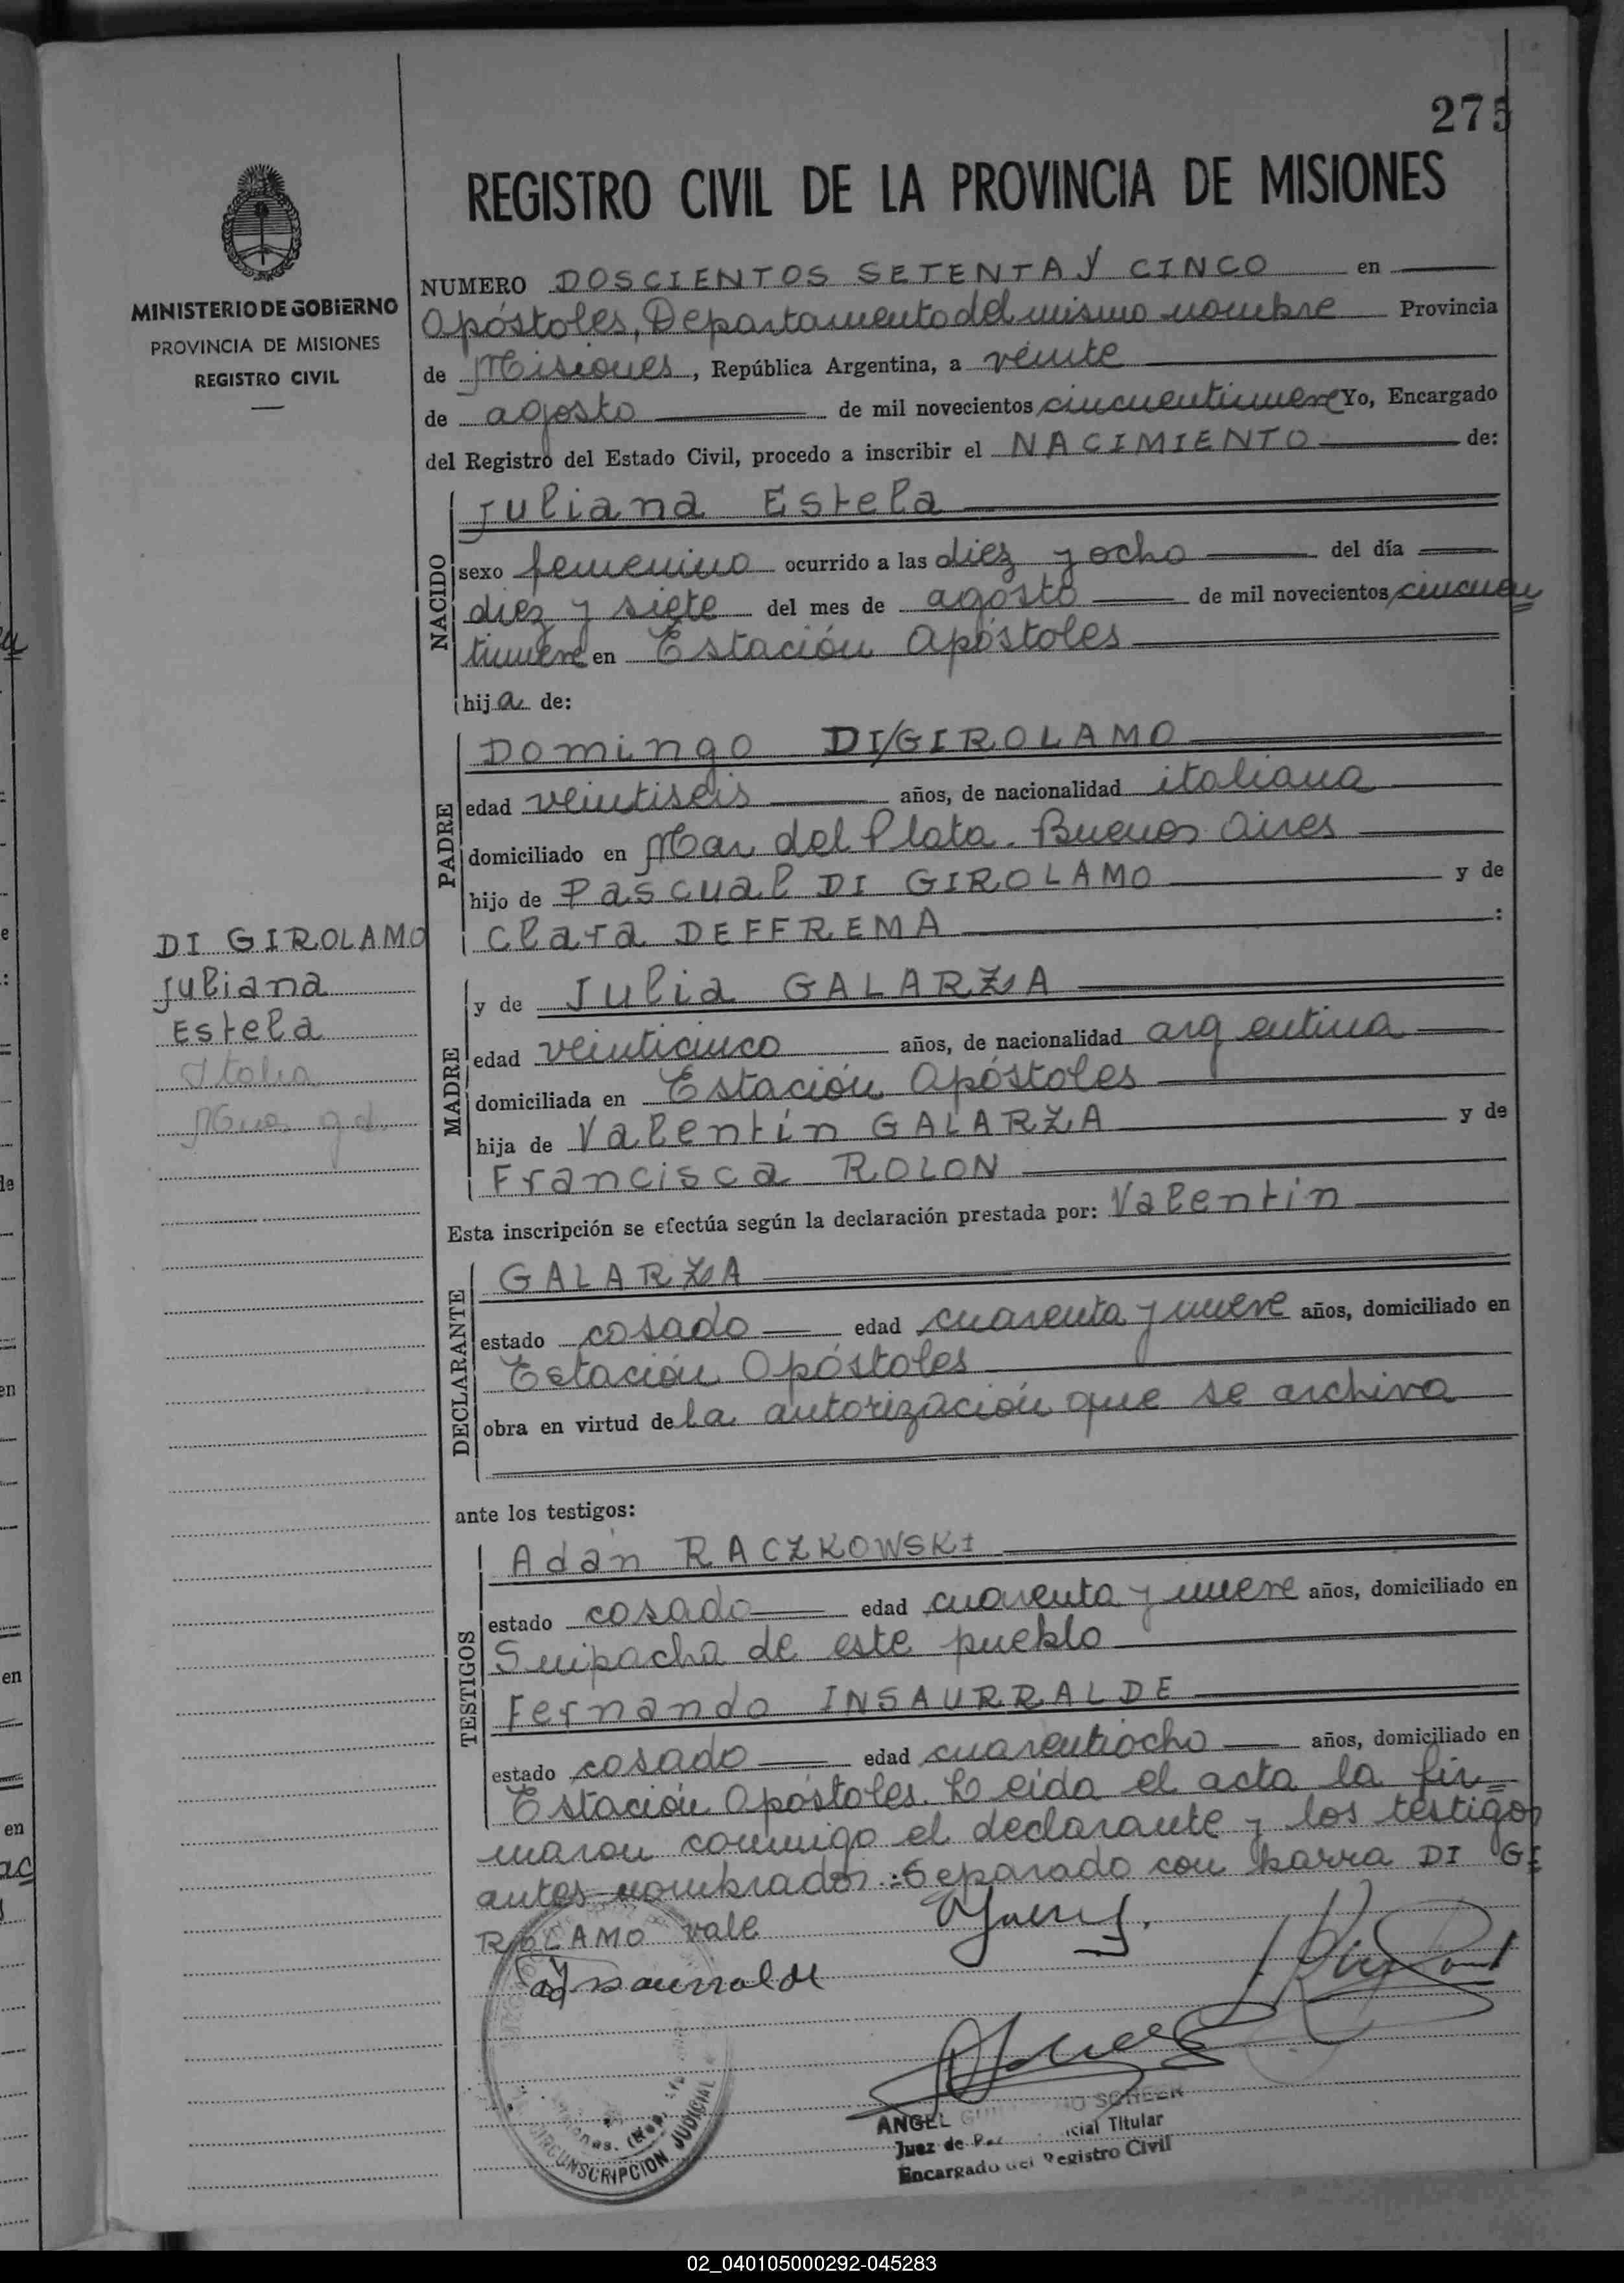 275
REGISTRO CIVIL DE LA PROVINCIA DE MISIONES
MINISTERIO DE GOBIERNO
PROVINCIA DE MISIONES
REGISTRO CIVIL
NUMERO DOSCIENTOS SETENTA Y CINCO en
Apóstoles, Departamento del mismo nombre Provincia
de Misiones, República Argentina, a veinte
de agosto de mil novecientos cincuentinueve Yo, Encargado
del Registro del Estado Civil, procedo a inscribir el NACIMIENTO de:
NACIDO
Juliana Estela
sexo femenino ocurrido a las diez y ocho del día
diez y siete del mes de agosto de mil novecientos cincuen
tinueve en Estación Apóstoles
hija de:
PADRE
Domingo DI/GIROLAMO
edad veintiseis años, de nacionalidad italiana
domiciliado en Mar del Plata. Buenos Aires
hijo de Pascual DI GIROLAMO y de
Clara DEFFREMA :
DI GIROLAMO
Juliana
Estela
Italia
MADRE
y de Julia GALARZA
edad veinticinco años, de nacionalidad argentina
domiciliada en Estación Apóstoles
hija de Valentín GALARZA y de
Francisca ROLON
Esta inscripción se efectúa según la declaración prestada por: Valentín
DECLARANTE
GALARZA
estado casado edad cuarenta y nueve años, domiciliado en
Estación Apóstoles
obra en virtud de la autorización que se archiva
ante los testigos:
TESTIGOS
Adán RACZKOWSKI
estado casado edad cuarenta y nueve años, domiciliado en
Suipacha de este pueblo
Fernando INSAURRALDE
estado casado edad cuarentiocho años, domiciliado en
Estación Apóstoles. Leida el acta la fir=
maron conmigo el declarante y los testigos
antes nombrados :Separado con barra DI GI
ROLAMO vale
ANGEL SCHEER
Juez de Titular
Encargado del Registro Civil
CIRCUNSCRIPCION JUDICIAL
02_040105000292-045283